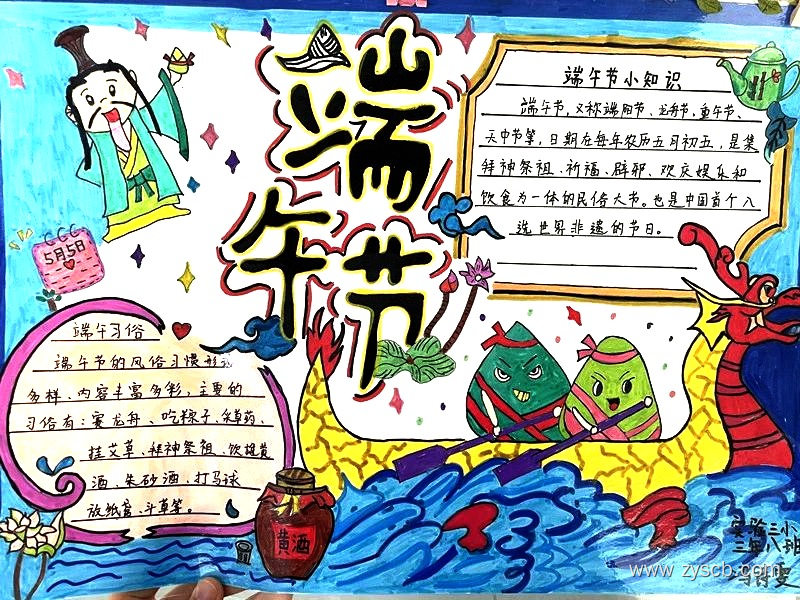 端午节
端午节小知识
端午节,又称端阳节、龙舟节、重午节、
天中节等,日期在每年农历五月初五,是集
拜神祭祖、祈福、辟邪、欢庆娱乐和
饮食为一体的民俗大节。也是中国首个入
选世界非遗的节日。
5月5日
端午习俗
端午节的风俗习惯形式
多样、内容丰富多彩,主要的
习俗有:赛龙舟、吃粽子、采草药、
挂艾草、拜神祭祖、饮雄黄
酒、朱砂酒、打马球
放纸鸢、斗草等。
黄酒
实验三小
三年八班
www.zyscb.com